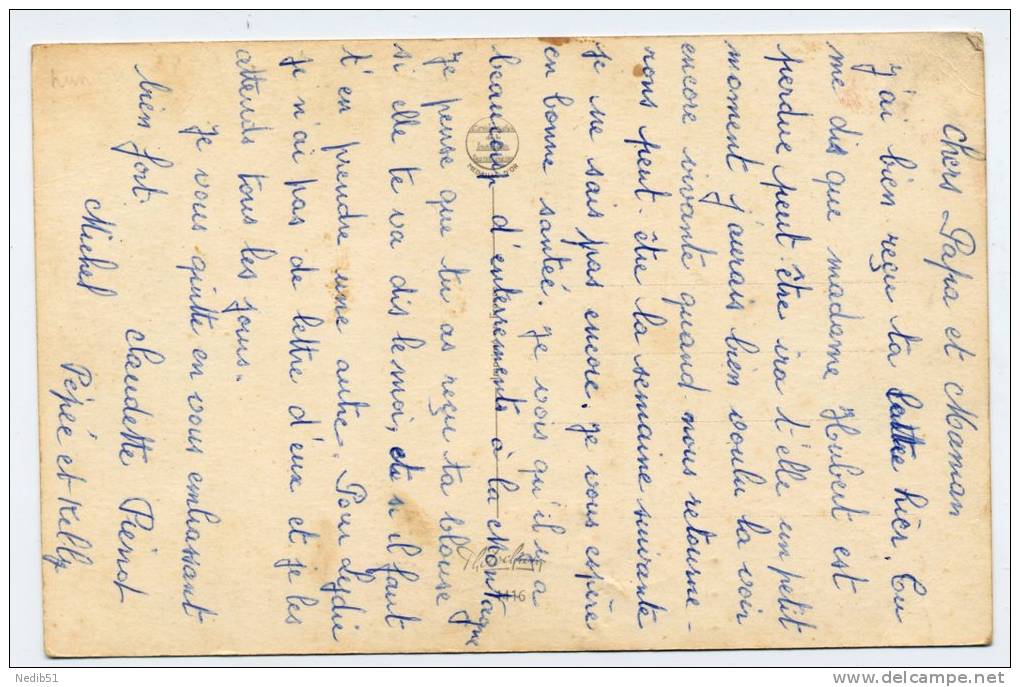 Chers Papa et Maman
J'ai bien reçu ta lettre hier. Tu
me dis que madame Hubert est
perdue peut-être ira t'elle un petit
moment j'aurais bien voulu la voir
encore vivante quand nous retourne-
rons peut-être la semaine suivante
je ne sais pas encore. Je vous espère
en bonne santée. Je vois qu'il y a
beaucoup d'enterrements à la Montagne
Je pense que tu as reçu ta blouse
si elle te va dis le moi, et s'il faut
t'en prendre une autre. Pour Lydie
je n'ai pas de lettre d'eux et je les
attends tous les jours.
Je vous quitte en vous embrassant
bien fort.
Michel Claudette Pierrot
Pépée et Kelly
MEDAILLE D'OR
116
Nedib51
http://www.delcampe.net